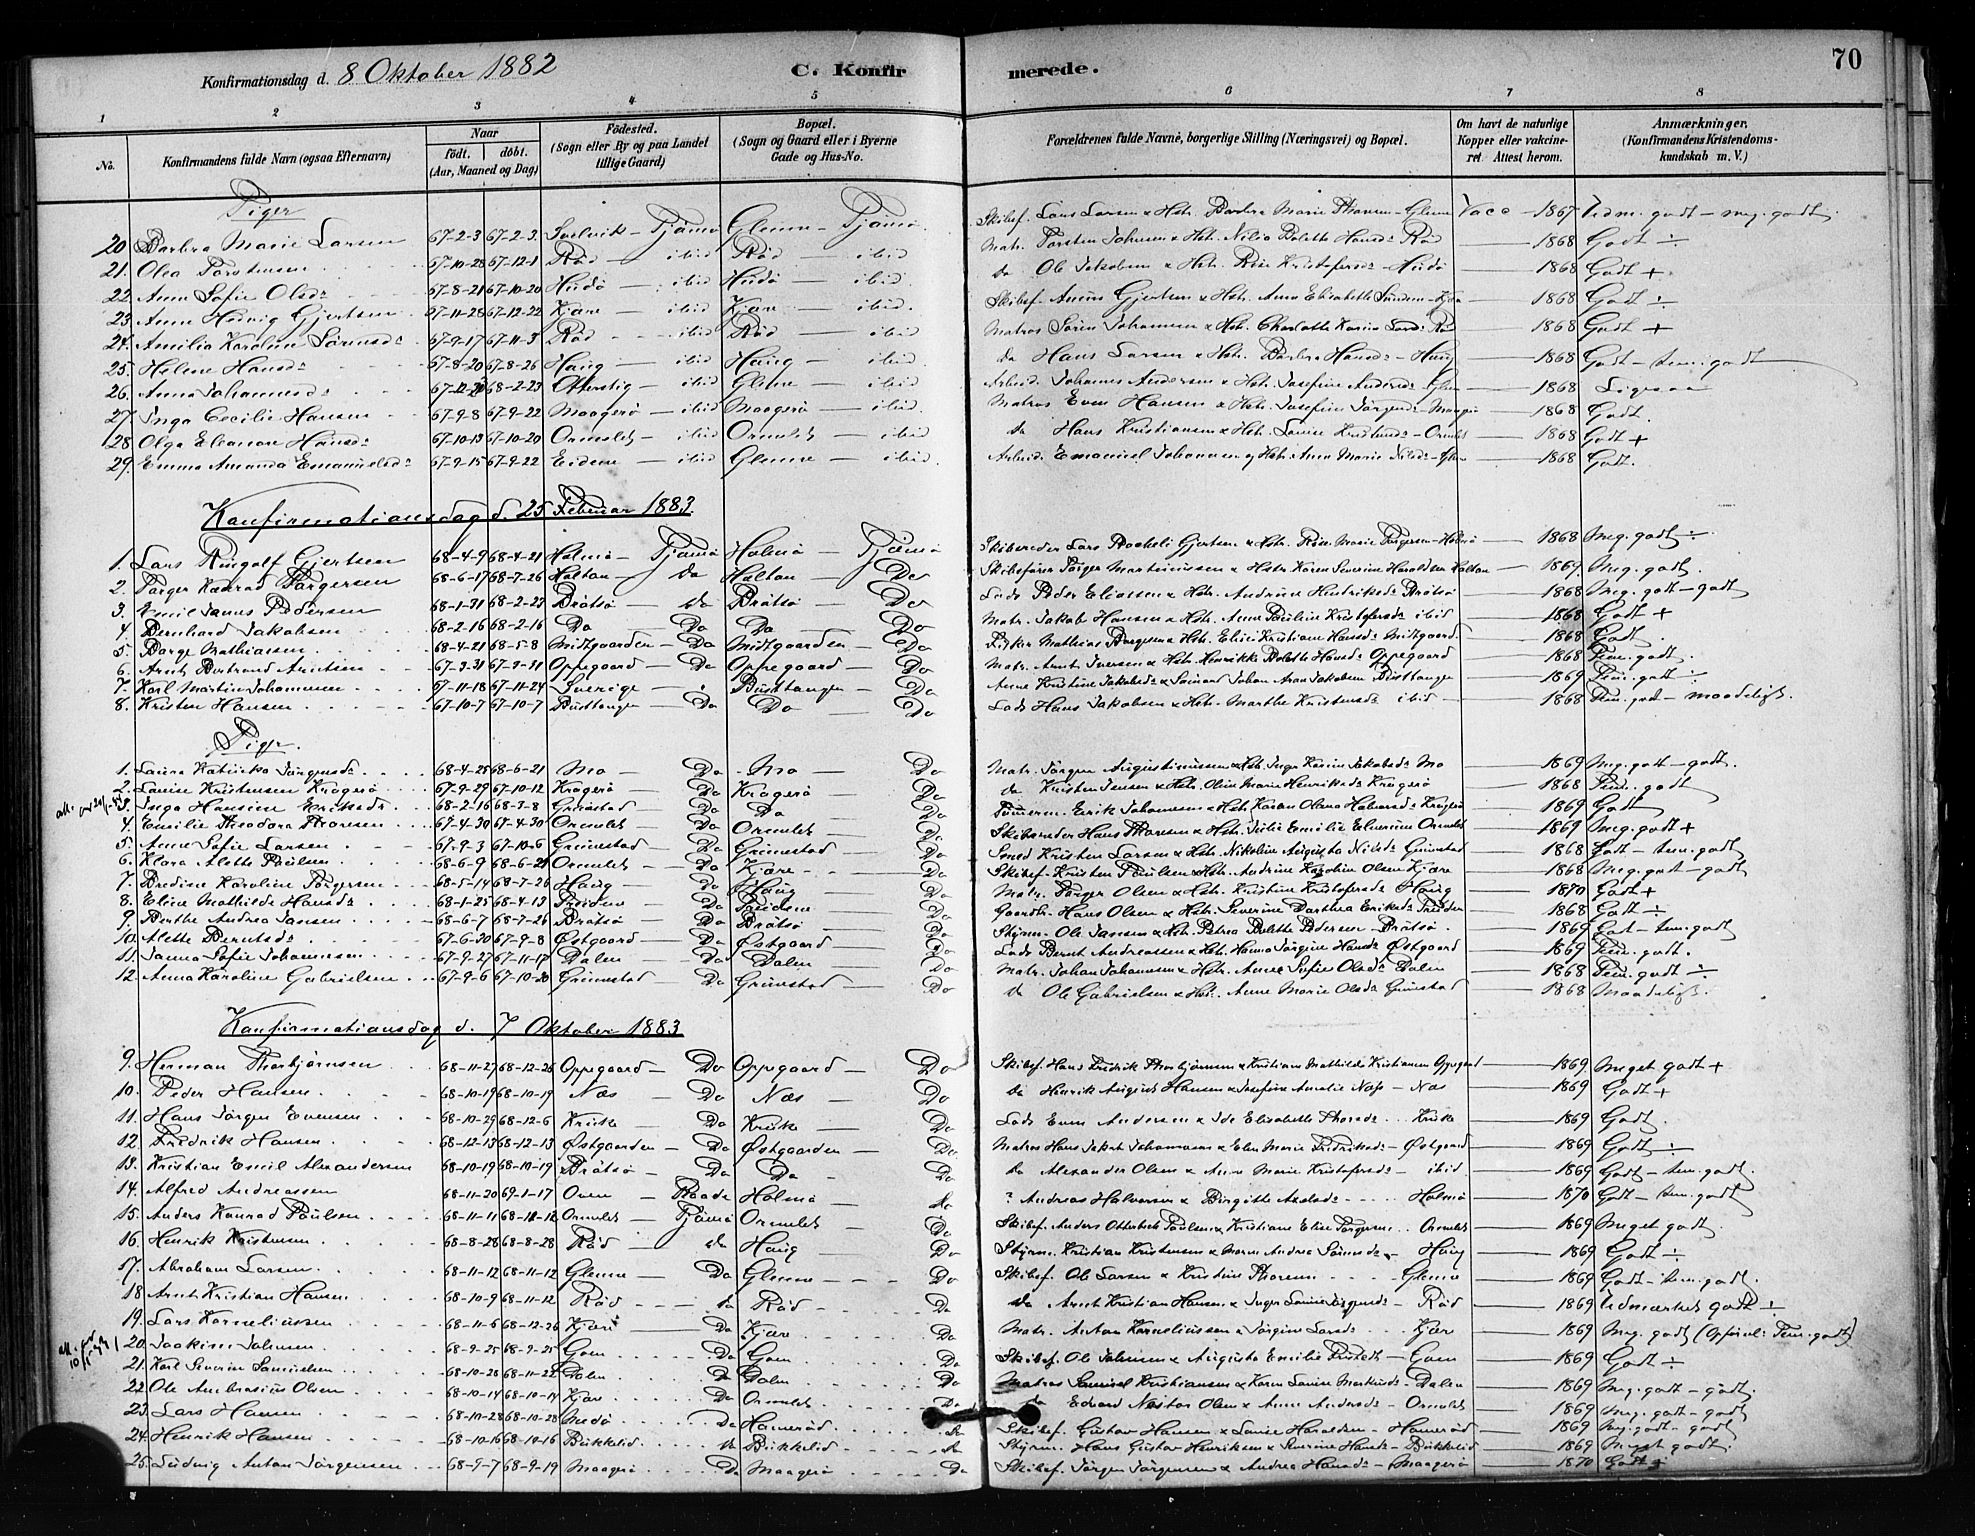 Konfirmationsdag d. 8 Oktober 1882 C. Konfirmerede. 70
1 2 3 4 5 6 7 8
No. Konfirmandens fulde Navn (ogsaa Efternavn) Naar født. døbt. (Aar, Maaned og Dag) Fødested. (Sogn eller By og paa Landet tillige Gaard) Bopæl. (Sogn og Gaard eller i Byerne Gade og Hus-No. Forældrenes fulde Navne, borgerlige Stilling (Næringsvei) og Bopæl. Om havt de naturlige Kopper eller vakcineret. Attest herom. Anmærkninger. (Konfirmandens Kristendomskundskab m. V.)
Piger
20 Barbra Marie Larsen 67-2-3 67-2-3 Svelvik - Tjømø Glenne - Tjømø Skibsf. Lars Larsen & Hstr. Barbra Marie Thoresen - Glenne Vacc - 1867 Udm. godt - meg. godt
21. Olea Torstensen 67-10-28 67-12-1 Rød - ibid Rød - ibid Matr. Torsten Johnsen & Hstr. Nilia Bolette Hansdr Rød 1868 Godt ÷
22. Anna Sofie Olsdr 67-8-21 67-10-20 Hudø - ibid Hudø - ibid do Ole Jakobsen & Hstr. Rise Kristofersdr - Hudø 1868 Godt +
23. Anne Hedvig Gjertsen 67-11-28 67-12-22 Kjære - ibid Kjære - ibid Skibsf. Gjertsen & Hstr. Anna Elisabeth 1868 Godt ÷
24. Amilia Karoline Sørensdr 67-9-17 67-11-3 Rød - ibid Rød - ibid Matros Søren Johansen & Hstr. Charlotte Karine Larsdr Rød 1868 Godt +
25. Helene Hansdr 67-8-20 67-8-26 Haug - ibid Haug - ibid do Hans Larsen & Hstr. Barbra Hansdr - Haug 1868 Godt - tem. godt
26. Anna Johannesdr 68-2-23 Otterstig - ibid Glenne - ibid Arbeid. Johannes Andersen & Hstr. Josefine Andersdr - Glen 1868 Ligesaa
27. Inga Cecilie Hansen 67-9-8 67-9-22 Maagerø - ibid Maagerø - ibid Matros Even Hansen & Hstr. Josefine Jørgensdr - Maagerø 1868 Godt
28. Olga Eleanore Hansdr 67-10-13 67-10-20 Ormelet - ibid Ormelet - ibid do Hans Kristiansen & Hstr. Lovise Knudsdr - Ormelet 1868 Godt +
29. Emma Amanda Emanuelsdr 67-9-15 67-9-22 Eidene - ibid Glenne - ibid. Arbeid. Emanuel Johannesen og Hstr. Anne Marie Nilsdr - Glen 1868 Godt.
Konfirmationsdag d. 25 Februar 1883.
1. Lars Ringolf Gjertsen 68-4-9 68-4-21 Holmø - Tjømø Holmø - Tjømø Skibsreder Lars Gjertsen & Hstr. Rise Marie Torgersen - Holmø 1868 Meg. godt ÷
2. Torger Konrad Torgersen 68-6-17 68-7-26 Holtan - do Holtan - Do Skibsfører Torger Martiniussen & Hstr. Karen Severine Haraldsen Holtan 1869. Meg. godt.
3. Emil Janus Pedersen 68-1-31 68-2-23 Brøtsø - do Brøtsø - Do Lods Peder Eliassen & Hstr. Andrine Hendriksdr Brøtsø 1868 Meg. godt - godt
4. Bernhard Jakobsen 68-2-16 68-2-16 Do - Do Do - Do Matr. Jakob Hansen & Hstr. Anne Pauline Kristofersdr ibid 1868 Godt +
5. Børge Mathiassen 68-4-21 68-5-8 Midtgaarden - Do Midtgaarden - Do Fisker Mathias Borgesen & Hstr. Eline Kristiane Hansdr Midtgaard 1868 Godt.
6. Arnt Bertrand Arntsen 67-3-31 Oppegaard - Do Oppegaard - Do Matr. Arnt Iversen & Hstr. Henrikke Bolette Hansdr Oppegaard 1868 Tem. godt.
7. Karl Martin Johannesen 67-11-18 67-11-24 Sverige - Budstangen - Do Anne Kristine Jakobsdr & Sømand Johan Aron Jakobsen Budstangen 1869 Tem. godt ÷
8. Kristen Hansen 67-10-7 67-10-7 Budstangen - Do Do - Do Lods Hans Jakobsen & Hstr. Marthe Kristensdr ibid 1868 Tem. godt - maadeligt.
Piger.
1. Laura Katinka Jørgensdr 68-4-28 68-6-21 Mo - Do Mo - Do Matr. Jørgen Augustinussen & Hstr. Inger Karine Jakobsdr Mo 1869 Meg. godt - godt.
2. Lovise Kristensen Krøgerø 67-9-29 67-10-12 Krøgerø - Do Krøgerø - Do do Kristen Jensen & Hstr. Oline Marie Henriksdr Krøgerø 1868 Tem. godt
3. Inga Hansine Eriksdr 68-2-16 68-3-8 Grimestad Do Do Do Tømrerm. Erik Johannesen & Hstr. Karen Olava Halvorsdr Krøgerø 1869 Godt
4. Emilie Theodora Thoresen 67-4-30 67-4-30 Ormelet Do Ormelet Do Skibsreder Hans Thoresen & Hstr. Julie Emilie Elverine Ormelet 1869 Meg. godt +
5. Anne Sofie Larsen 67-9-3 67-10-6 Grimestad Do Grimestad Do Smed Kristen Larsen & Hstr. Nikoline Augusta Nilsdr Grimestad 1868 Godt - tem. godt
6. Klara Alette Paulsen 68-6-9 Ormelet - Do Kjære - Do Skibsf. Kristen Paulsen & Hstr. Andrine Karoline Olsen Kjære 1868 Meg. godt - godt
7. Bredine Karoline Torgersen 68-5-14 68-7-26 Haug - Do Haug Do Matr. Torger Olsen & Hstr. Kristine Kristofersdr Haug 1870 Godt +
8. Eline Mathilde Hansdr 68-1-25 68-4-13 Treidene Do Treidene Do Gaardbr. Hans Olsen & Hstr. Severine Dorthea Eriksdr Treidene 1868 Godt ÷
9. Berthe Andrea Jansen 68-6-7 68-7-26 Brøtsø - Do Brøtsø Do Styrm. Ole Jansen & Hstr. Petrea Bolette Pedersen - Brøtsø. 1869 Godt - tem. godt
10. Alette Berntsdr 67-6-30 67-9-8 Østgaard - Do Østgaard Do Lods Bernt Andreassen & Hstr. Hanna Jørgine Hansdr Østgaard 1869 Tem. godt.
11. Janna Sofie Johannesen 67-9-27 67-11-17 Dalen - Do Dalen Do Matr. Johan Johannesen & Hstr. Anne Sofie Olsdr Dalen 1868 Tem. godt ÷
12. Anna Karoline Gabrielsen 67-9-6 67-10-20 Grimestad - Do Grimestad Do do Ole Gabrielsen & Hstr. Anne Marie Olsdr Grimestad 1868 Maadeligt.
Konfirmationsdag d. 7 Oktober 1883
9. Herman Thorbjørnsen 68-11-27 68-12-26 Oppegaard - Do Oppegaard - Do Skibsf. Hans Fredrik Thorbjørnsen & Kristiane Mathilde Kristiansen Oppegaard 1869 Meget godt +
10. Peder Hansen 68-10-19 68-10-19 Næs - Do Næs - Do do Henrik August Hansen & Josefine Amalie Næss - Næs 1869 Godt +
11. Hans Jørgen Evensen 68-10-29 68-12-6 Kruke - Do Kruke - Do Lods Even Andersen & Ide Elisabeth Thorsdr Kruke 1869 Godt.
12. Fredrik Hansen 68-12-13 68-12-13 Østgaarden - Do Østgaarden - Do Matros Hans Jakob Johannesen & Elen Marie Fredriksdr - Østgaard 1869 Godt ÷
13. Kristian Emil Alexandersen 68-10-19 68-10-19 Brøtsø - Do Do - Do do Alexander Olsen & Anne Marie Kristofersdr - ibid 1869 Godt - tem. godt.
14. Alfred Andreassen 68-11-20 69-1-17 Oven - Raade Holmø - do ? Andreas Halvorsen & Birgitte Axelsdr Holmø 1870 Godt - tem. godt
15. Anders Konrad Paulsen 68-11-11 Ormelet - Tjømø Ormelet Do Skibsf. Anders Otterbeck Paulsen & Kristiane Elise Torgersen Ormelet 1869 Meget godt.
16. Henrik Kristensen 68-8-28 68-8-28 Rød do Haug Do Styrm. Kristian Kristensen & Maren Andrea Sørensdr - Haug 1869 Godt ÷
17. Abraham Larsen 68-11-12 68-11-12 Glenne - Do Glenne - Do Skibsf. Ole Larsen & Kristine Thoresen Glenne 1869 Godt - tem. godt.
18. Arnt Kristian Hansen 68-10-9 68-11-12 Rød do Rød Do do Arnt Kristian Hansen & Inger Lovise Jørgensdr - Rød 1869 Udmærket godt ÷
19. Lars Korneliussen 68-11-6 68-12-26 Kjære Do Kjære Do Matr. Anton Korneliussen & Jørgine Larsdr Kjær 1869 Meg. godt (Opførsel: Tem. godt)
20. Joakim Johnsen 68-9-25 68-9-25 Gom Do Gom Do Skibsf. Ole Johnsen & Augusta Emilie - Gom 1869 Godt ÷
21. Karl Severin Samuelsen 68-10-28 68-11-22 Dalen Do Dalen Do Matros Samuel Kristiansen & Karen Lovise Markusdr - Dalen 1869 Meg. godt - godt.
22. Ole Ambrosius Olsen 68-10-14 68-10-14 Kjær Do Ormelet Do do Edvard Nestor Olsen & Anne Andersdr - Ormelet 1869 Meg. godt - godt
23. Lars Hansen 68-10-28 68-10-28 Medø Do Hønerød do Skibsf. Gustav Hansen & Lovise Haraldsen - Hønerød 1869 Meg. godt - godt
24. Henrik Hansen 68-10-16 68-10-16 Bukkelid do Bukkelid do Styrm. Hans Gustav Henriksen & Severine Hansdr - Bukkelid 1869 Meget godt.
25. Ludvig Anton Jørgensen 68-9-7 68-9-19 Maagerø Do Maagerø Do Skibsf. Jørgen Jørgensen & Andrea Hansdr - Maagerø 1870 Godt +